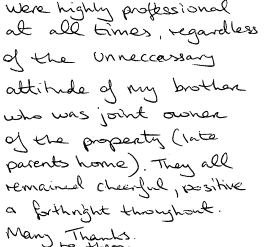 were highly professional
at all times, regardless
of the unneccassary
attitude of my brother
who was joint owner
of the property (late
parents home). They all
remained cheerful, positive
a forthright throughout.
Many Thanks.